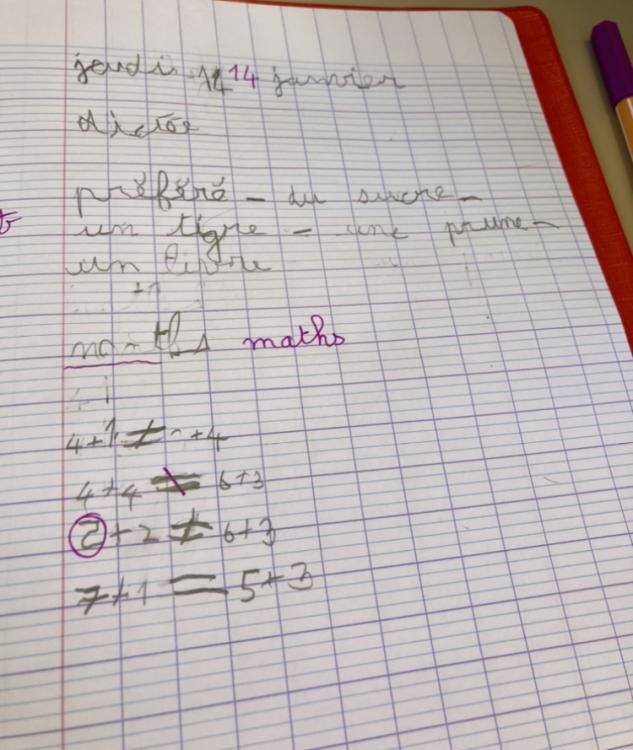 jeudi 14 janvier
dictée
préféré - du sucre -
un tigre - une prune -
un livre
+1
maths maths
4+1 ≠ +4
4+4 ≠ 6+3
2+2 ≠ 6+3
7+1 = 5+3